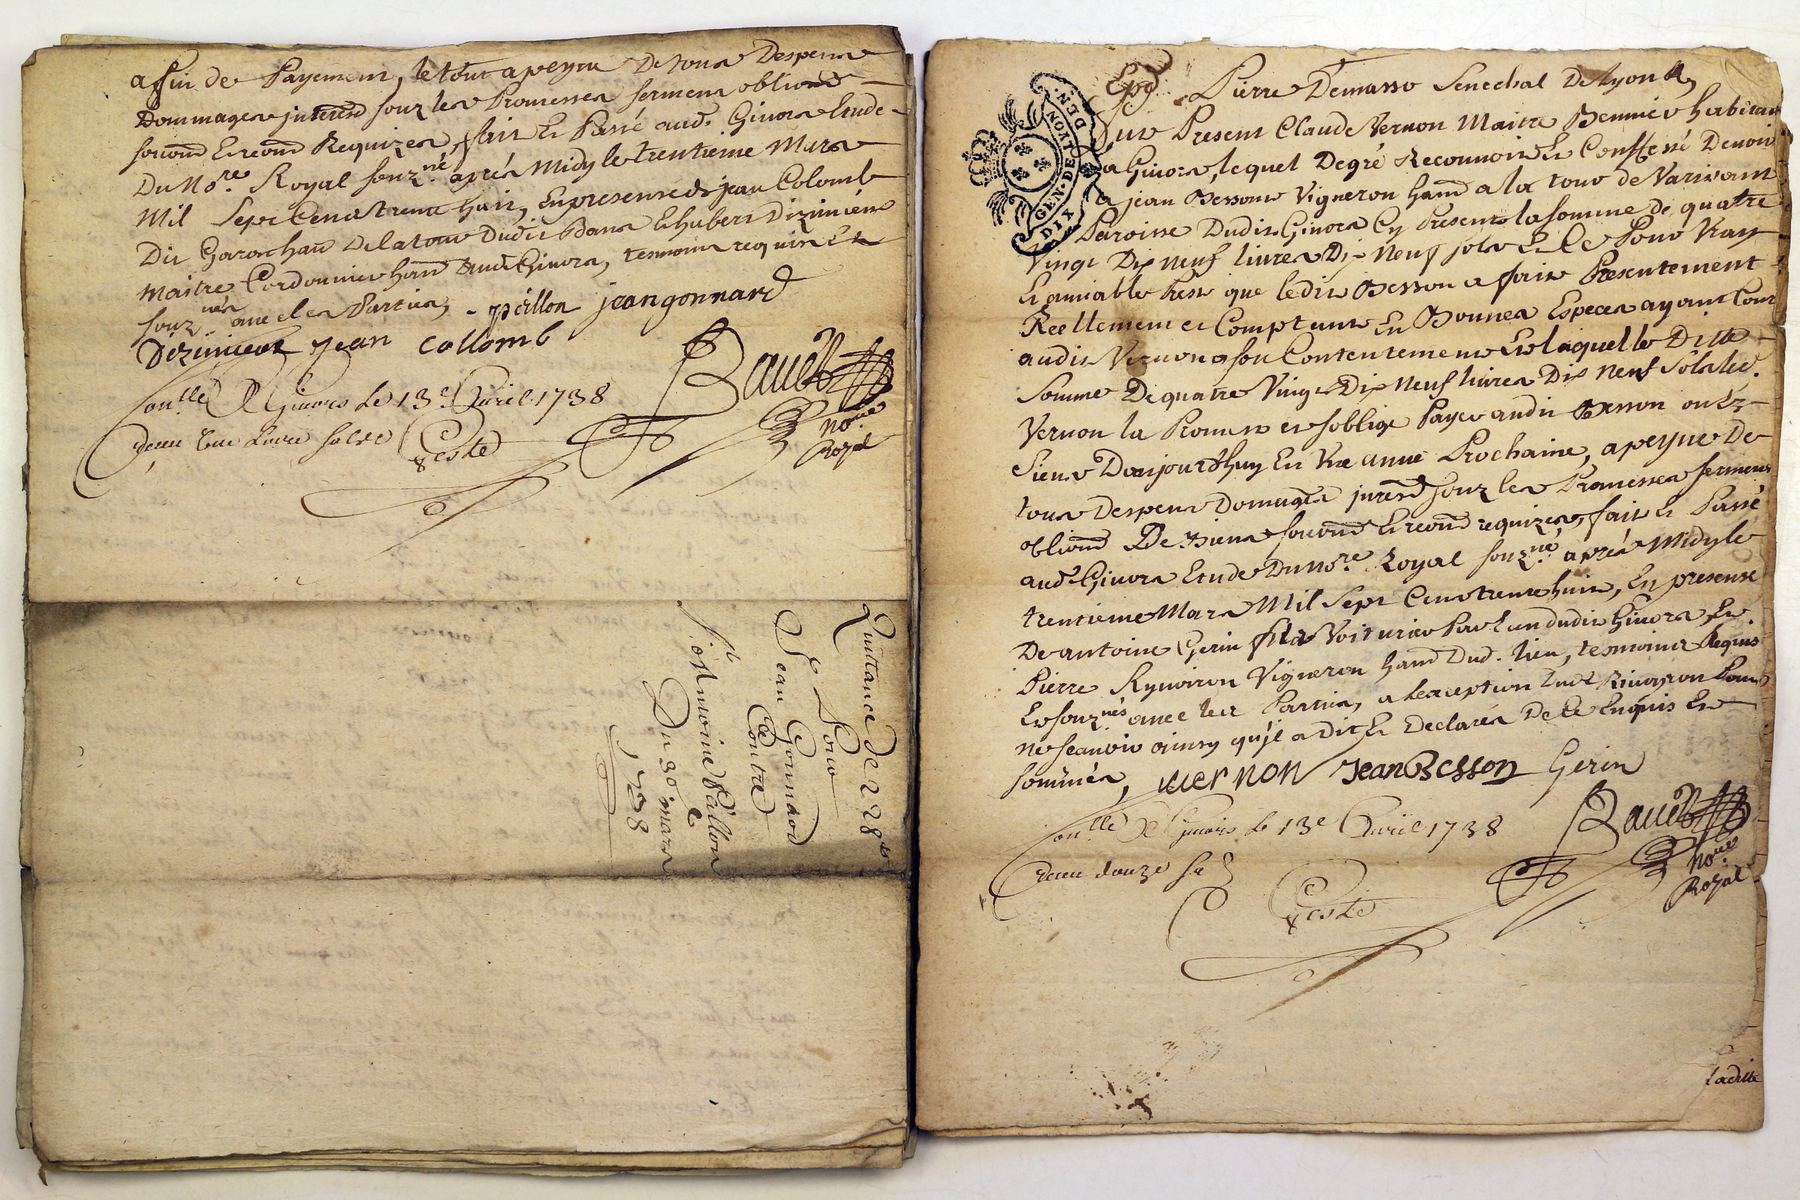 a fin de Payement, le tout a peyne De tous Despens
Dommages interest souz les Promesses serment obliond
soumond Et reond Requizes, fait Et Passé aud. Givors Etude
Du No.re Royal souz.né après Midy le trentieme Mars
Mil Sept Cens trente huit, En presense de jean Colomb
Dit Garon han Delatour Dudit Et hubert Dizimieux
Maitre Cordonnier han aud Givors, temoins requis Et
souz.nés avec les Parties, . pâillon jean gonnard
Dizimieux jean collomb
Bauet
Not.re
Royal
Con.llé A Givors Le 13.e Avril 1738
Receu Une Livre
Coste
Quittance De 228.#
Pour
S.r Jean Gonnard
Contre
S.r Antoine Paillon
Du 30.e mars
1738
Exp.d Pierre Demasso Senechal De Lyon &
Fut Present Claude Vernon Maitre Bennier habitant
a Givors, lequel De gré Reconnoit Et Confessé Devoir
a jean Besson Vigneron hand a la tour de Varissant
Paroisse Dudit Givors Cy Present la somme de quatre
Vingt Dix neuf livres Dix Neuf sols Et Ce Pour Vray
Et amiable Prest que ledit Besson a fait Presentement
Reellement et Comptant En Bonnes Especes ayant Cour
audit Vernon a son Contentement Et laquelle Ditte
Somme De quatre Vingt Dix Neuf livres Dix Neuf Sols led.
Vernon la Promet et soblige Payer audit Besson ou Es
Siens Daujourd'huy En Une année Prochaine, a peyne De
tous Despens Domages interest souz les Promesses serment
obliond De Biens soumond Et reond requizes, fait Et Passé
aud Givors Etude Du No.re Royal souz.né après Midy le
trentieme Mars Mil Sept Cens trente huit, En presense
De antoine Gerin fils Voiturier Par Eau dudit Givors Et
Pierre Rivoiron Vigneron hand Dud. lieu, temoins Requis
Et souz.nés avec les Parties, a lexception Dud Rivoiron Pour
ne scavoir ainsy qu'il a Dit Et Declaré De Ce Enquis Et
sommés, vernon Jean Besson Gerin
Bauet
Not.re
Royal
Con.llé A Givors Le 13e Avril 1738
Receu douze s
Coste
ladite
GEN. DE LYON
DIX DEN.